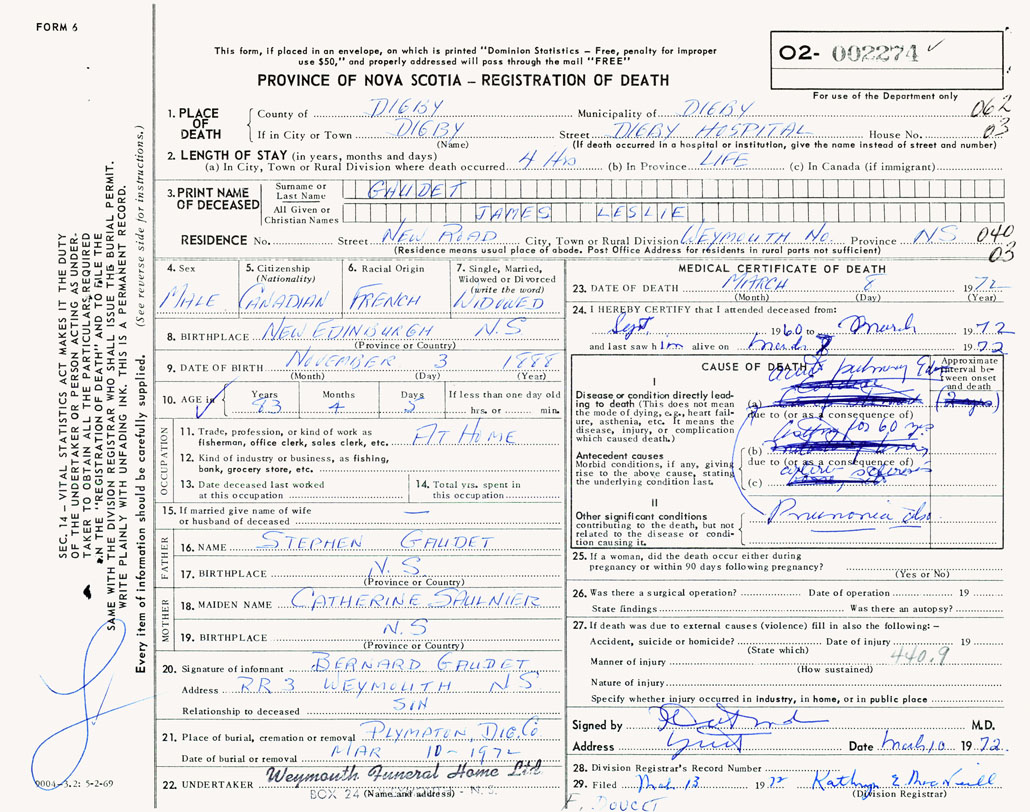 FORM 6
This form, if placed in an envelope, on which is printed "Dominion Statistics – Free, penalty for improper
use $50," and properly addressed will pass through the mail "FREE"
PROVINCE OF NOVA SCOTIA – REGISTRATION OF DEATH
02- 002274 ✓
For use of the Department only
062
03
1. PLACE OF DEATH
County of DIGBY Municipality of DIGBY
If in City or Town DIGBY Street DIGBY HOSPITAL House No.
(Name) (If death occurred in a hospital or institution, give the name instead of street and number)
2. LENGTH OF STAY (in years, months and days)
(a) In City, Town or Rural Division where death occurred 4 Hrs (b) In Province LIFE (c) In Canada (if immigrant)
3. PRINT NAME OF DECEASED
Surname or Last Name GAUDET
All Given or Christian Names JAMES LESLIE
RESIDENCE No. Street NEW ROAD City, Town or Rural Division WEYMOUTH No. Province NS 040
03
(Residence means usual place of abode. Post Office Address for residents in rural parts not sufficient)
4. Sex
MALE
5. Citizenship
(Nationality)
CANADIAN
6. Racial Origin
FRENCH
7. Single, Married,
Widowed or Divorced
(write the word)
WIDOWED
8. BIRTHPLACE NEW EDINBURGH N.S
(Province or Country)
9. DATE OF BIRTH NOVEMBER 3 1888
(Month) (Day) (Year)
10. AGE in Years Months Days If less than one day old
83 4 5 hrs. or min.
OCCUPATION
11. Trade, profession or kind of work as
fisherman, office clerk, sales clerk, etc. AT HOME
12. Kind of industry or business, as fishing,
bank, grocery store, etc.
13. Date deceased last worked
at this occupation
14. Total yrs. spent in
this occupation
15. If married give name of wife
or husband of deceased —
FATHER
16. NAME STEPHEN GAUDET
17. BIRTHPLACE N.S
(Province or Country)
MOTHER
18. MAIDEN NAME CATHERINE SAULNIER
19. BIRTHPLACE N.S
(Province or Country)
20. Signature of informant BERNARD GAUDET
Address RR 3 WEYMOUTH NS
Relationship to deceased SON
21. Place of burial, cremation or removal PLYMPTON, DIG. Co
Date of burial or removal MAR 10 - 1972
22. UNDERTAKER Weymouth Funeral Home Ltd
BOX 24 (Name and address) N.S.
MEDICAL CERTIFICATE OF DEATH
23. DATE OF DEATH MARCH 8 1972
(Month) (Day) (Year)
24. I HEREBY CERTIFY that I attended deceased from:
Sept 1960 to March 1972
and last saw him alive on March 8 1972
CAUSE OF DEATH
Approximate
interval be-
tween onset
and death
I
Disease or condition directly lead-
ing to death (This does not mean
the mode of dying, e.g., heart fail-
ure, asthenia, etc. It means the
disease, injury, or complication
which caused death.)
acute pulmonary
(a)
due to (or as a consequence of)
for 60 yrs
Antecedent causes
Morbid conditions, if any, giving
rise to the above cause, stating
the underlying condition last.
(b)
due to (or as a consequence of)
(c)
II
Other significant conditions
contributing to the death, but not
related to the disease or condi-
tion causing it.
Pneumonia also
25. If a woman, did the death occur either during
pregnancy or within 90 days following pregnancy?
(Yes or No)
26. Was there a surgical operation? Date of operation 19
State findings Was there an autopsy?
27. If death was due to external causes (violence) fill in also the following: –
Accident, suicide or homicide? Date of injury 19
(State which)
Manner of injury 440.9
(How sustained)
Nature of injury
Specify whether injury occurred in industry, in home, or in public place
Signed by M.D.
Address Date March 10 1972
28. Division Registrar's Record Number
29. Filed Mch 13 1972 Kathryn E McNeill
(Division Registrar)
F. DOUCET
SEC. 14 – VITAL STATISTICS ACT MAKES IT THE DUTY
OF THE UNDERTAKER OR PERSON ACTING AS UNDER-
TAKER TO OBTAIN ALL THE PARTICULARS REQUIRED
IN THE "REGISTRATION OF DEATH" AND TO FILE THE
SAME WITH THE DIVISION REGISTRAR WHO SHALL ISSUE THE BURIAL PERMIT.
WRITE PLAINLY WITH UNFADING INK. THIS IS A PERMANENT RECORD.
Every item of information should be carefully supplied. (See reverse side for instructions.)
9004-3.2: 5-2-69